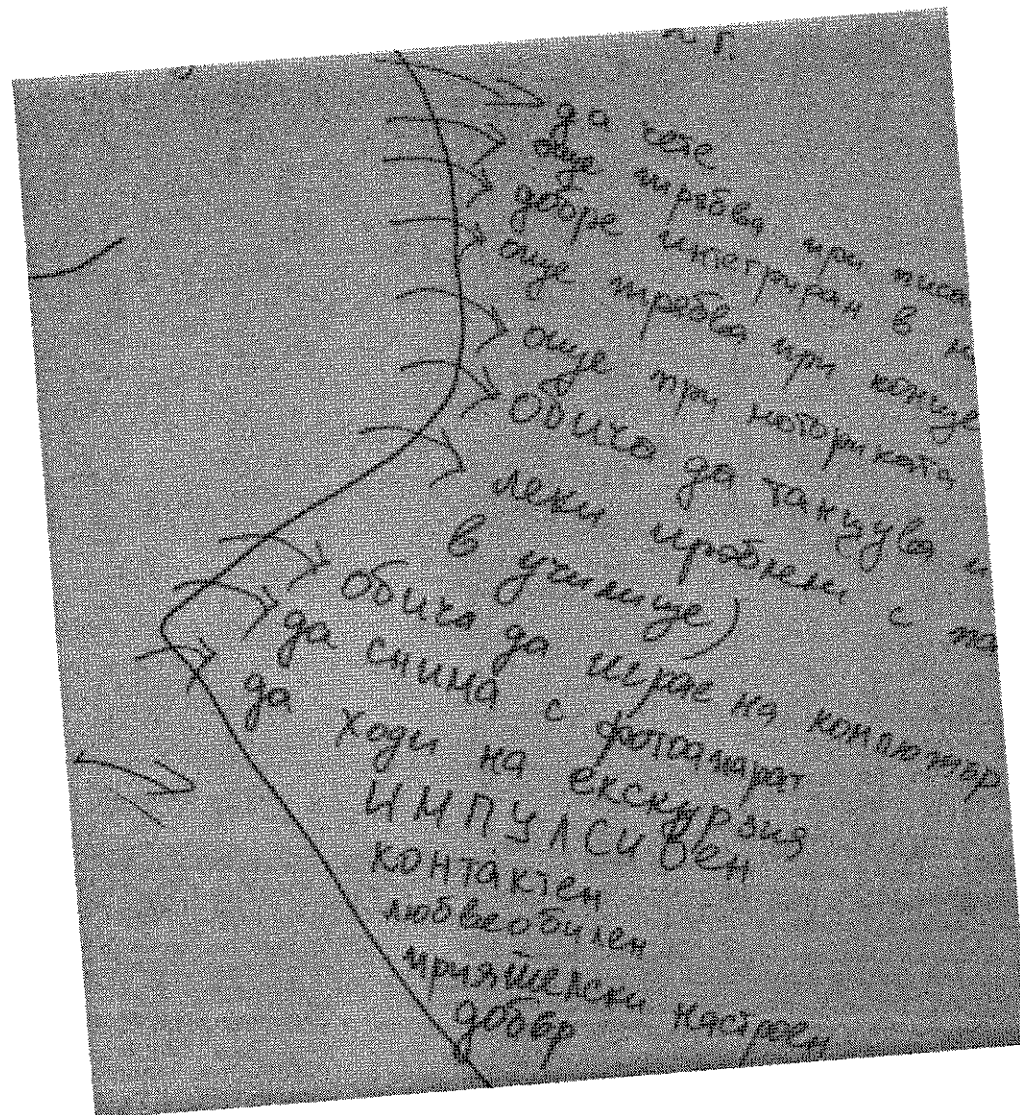 да
още трябва при писа
добре интегриран в
още трябва при конце
още при моториката
Обича да танцува и
леки проблеми с
в училище)
Обича да играе на компютър
да снима с фотоапарат
да ходи на екскурзия
ИМПУЛСИВЕН
контактен
любвеобилен
приятелски настроен
добър